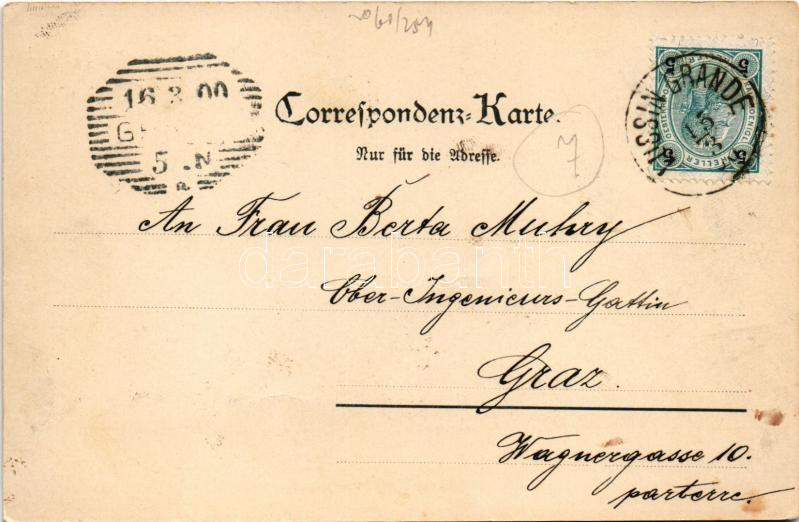 2060/254
16.3.00
5 N
Correspondenz=Karte.
Nur für die Adresse.
7
LUSSIN GRANDE
5 5
5 HELLER 5
An Frau Berta Muhry
Ober-Ingenieurs-Gattin
Graz.
Wagnergasse 10.
parterre.
darabanth